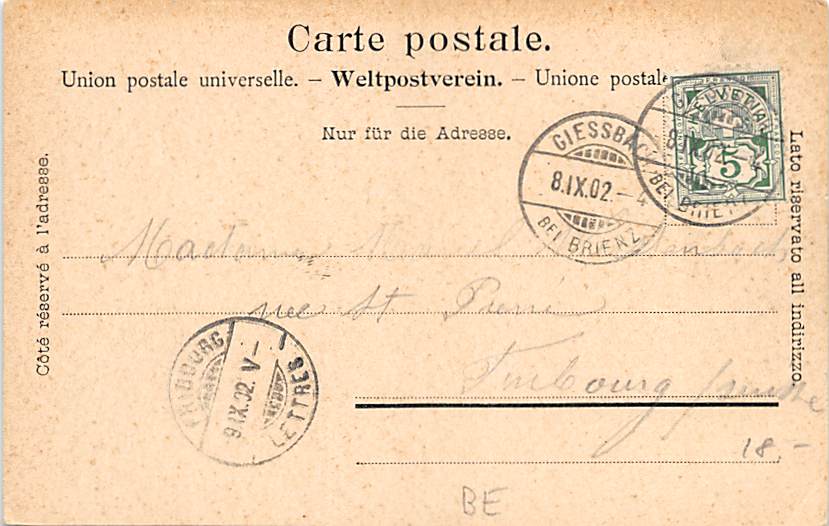 Carte postale.
Union postale universelle. – Weltpostverein. – Unione postale
Nur für die Adresse.
HELVETIA
5
GIESSBACH
8.IX.02.–4
BEI BRIENZ
GIESSBACH
8.IX.02
BEI BRIENZ
Côté réservé à l'adresse.
Lato riservato all indirizzo.
Madame
rue St Pierre
Fribourg Suisse
FRIBOURG
9.IX.02. V–
LETTRES
18.-
BE